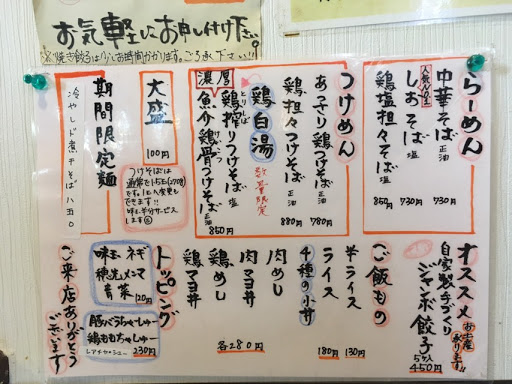 お気軽にお申し付け下さい。
※焼き餃子は少しお時間かかります。ご了承下さい!!
らーめん
人気No.1
中華そば 正油 730円
しおそば 塩 730円
鶏塩担々そば 塩 850円
つけめん
あっさり鶏つけそば 正油 780円
鶏担々つけそば 正油 880円
鶏白湯 数量限定
とりしぼ
鶏搾りつけそば 塩
濃厚
魚介鶏骨つけそば 正油
850円
大盛
100円
つけそばは
通常で1.5玉(270g)
です。1玉へ変更も
できます!!
味玉半分サービス
します
期間限定麺
冷やし煮干そば 八五〇
オススメ
お土産承ります!!
自家製手づくり
ジャンボ餃子 5ヶ入 450円
ご飯もの
半ライス 130円
ライス 180円
4種の小丼
肉めし
肉マヨ丼
鶏めし
鶏マヨ丼
各280円
トッピング
味玉 ネギ
穂先メンマ
青菜 120円
豚バラちゃーしゅー
鶏ももちゃしゅー
レアチャーシュー 230円
ご来店ありがとう
ございます